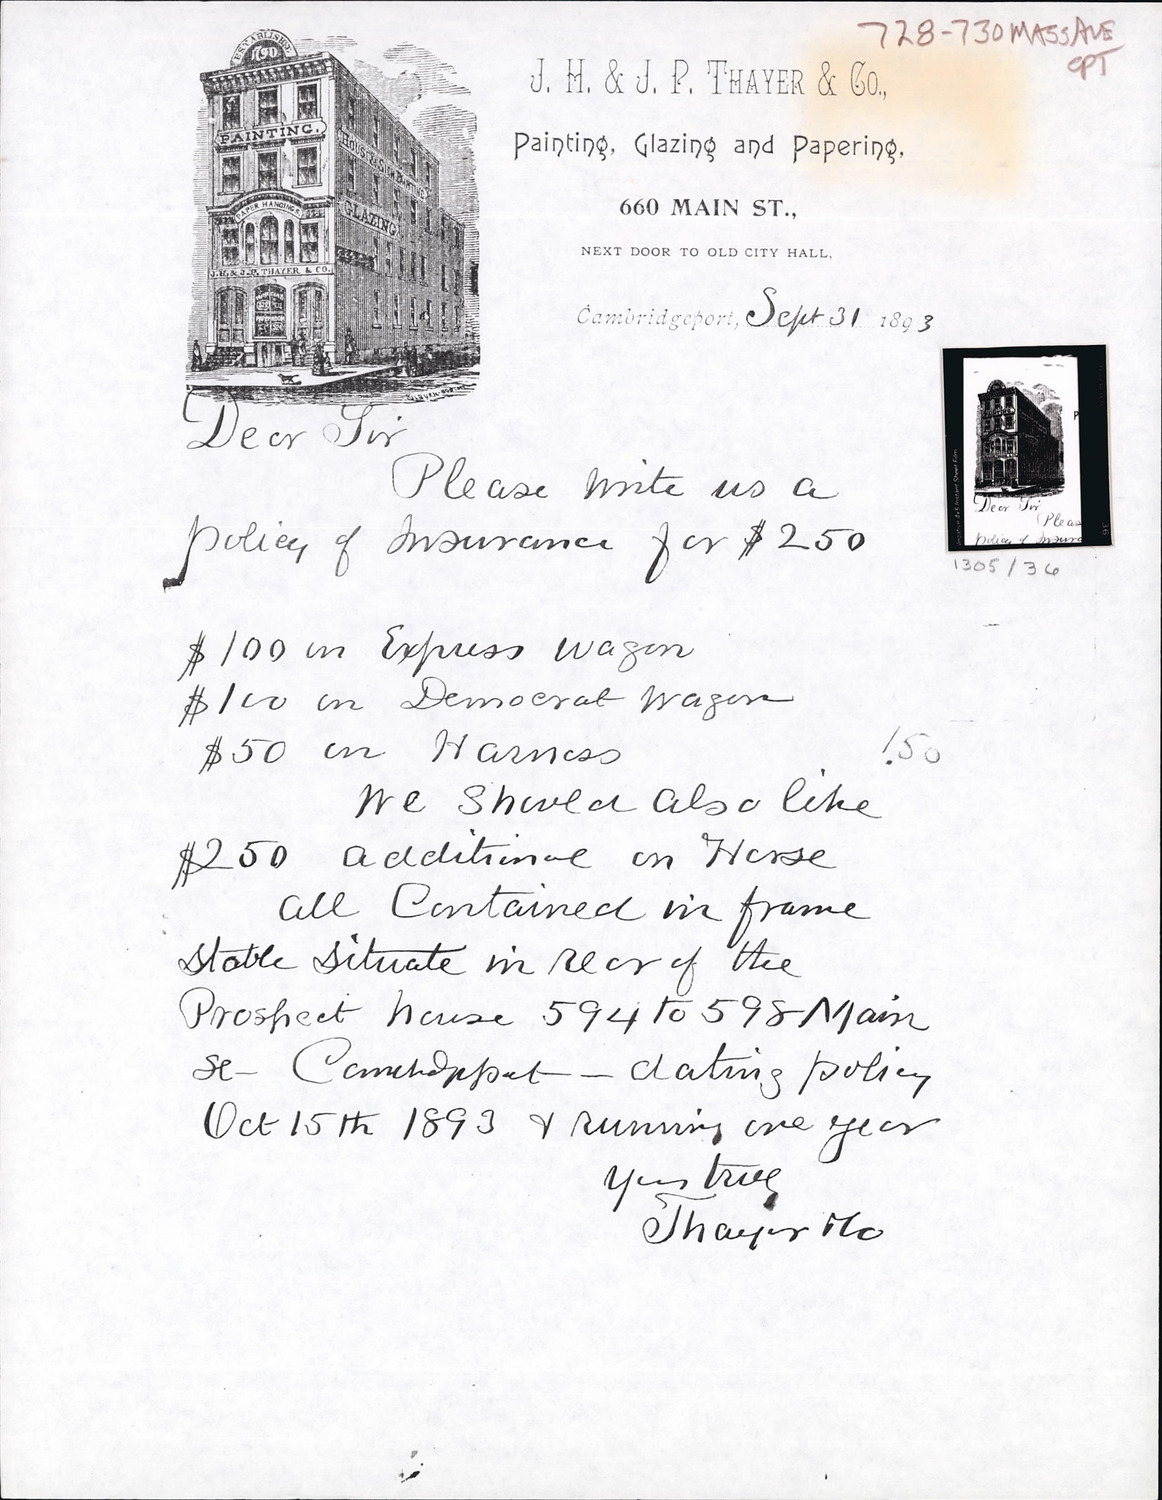 728-730 MASS AVE
CPT
ESTABLISHED
1790
PAINTING.
HOUSE & SIGN PAINTING
PAPER HANGINGS
GLAZING.
J. H. & J. P. THAYER & CO.
J. H. & J. P. THAYER & CO.,
Painting, Glazing and Papering,
660 MAIN ST.,
NEXT DOOR TO OLD CITY HALL,
Cambridgeport, Sept 31 1893
Dear Sir
Please write us a
policy of Insurance for $250
$100 on Express wagon
$100 on Democrat Wagon
$50 on Harness
1.50
We Should also like
$250 additional on Horse
all Contained in frame
stable situate in rear of the
Prospect house 594 to 598 Main
st - Cambdgport - dating policy
Oct 15th 1893 & running one year
Yours truly
Thayer & Co
Dear Sir
Pleas
policy of Insura
1305/36